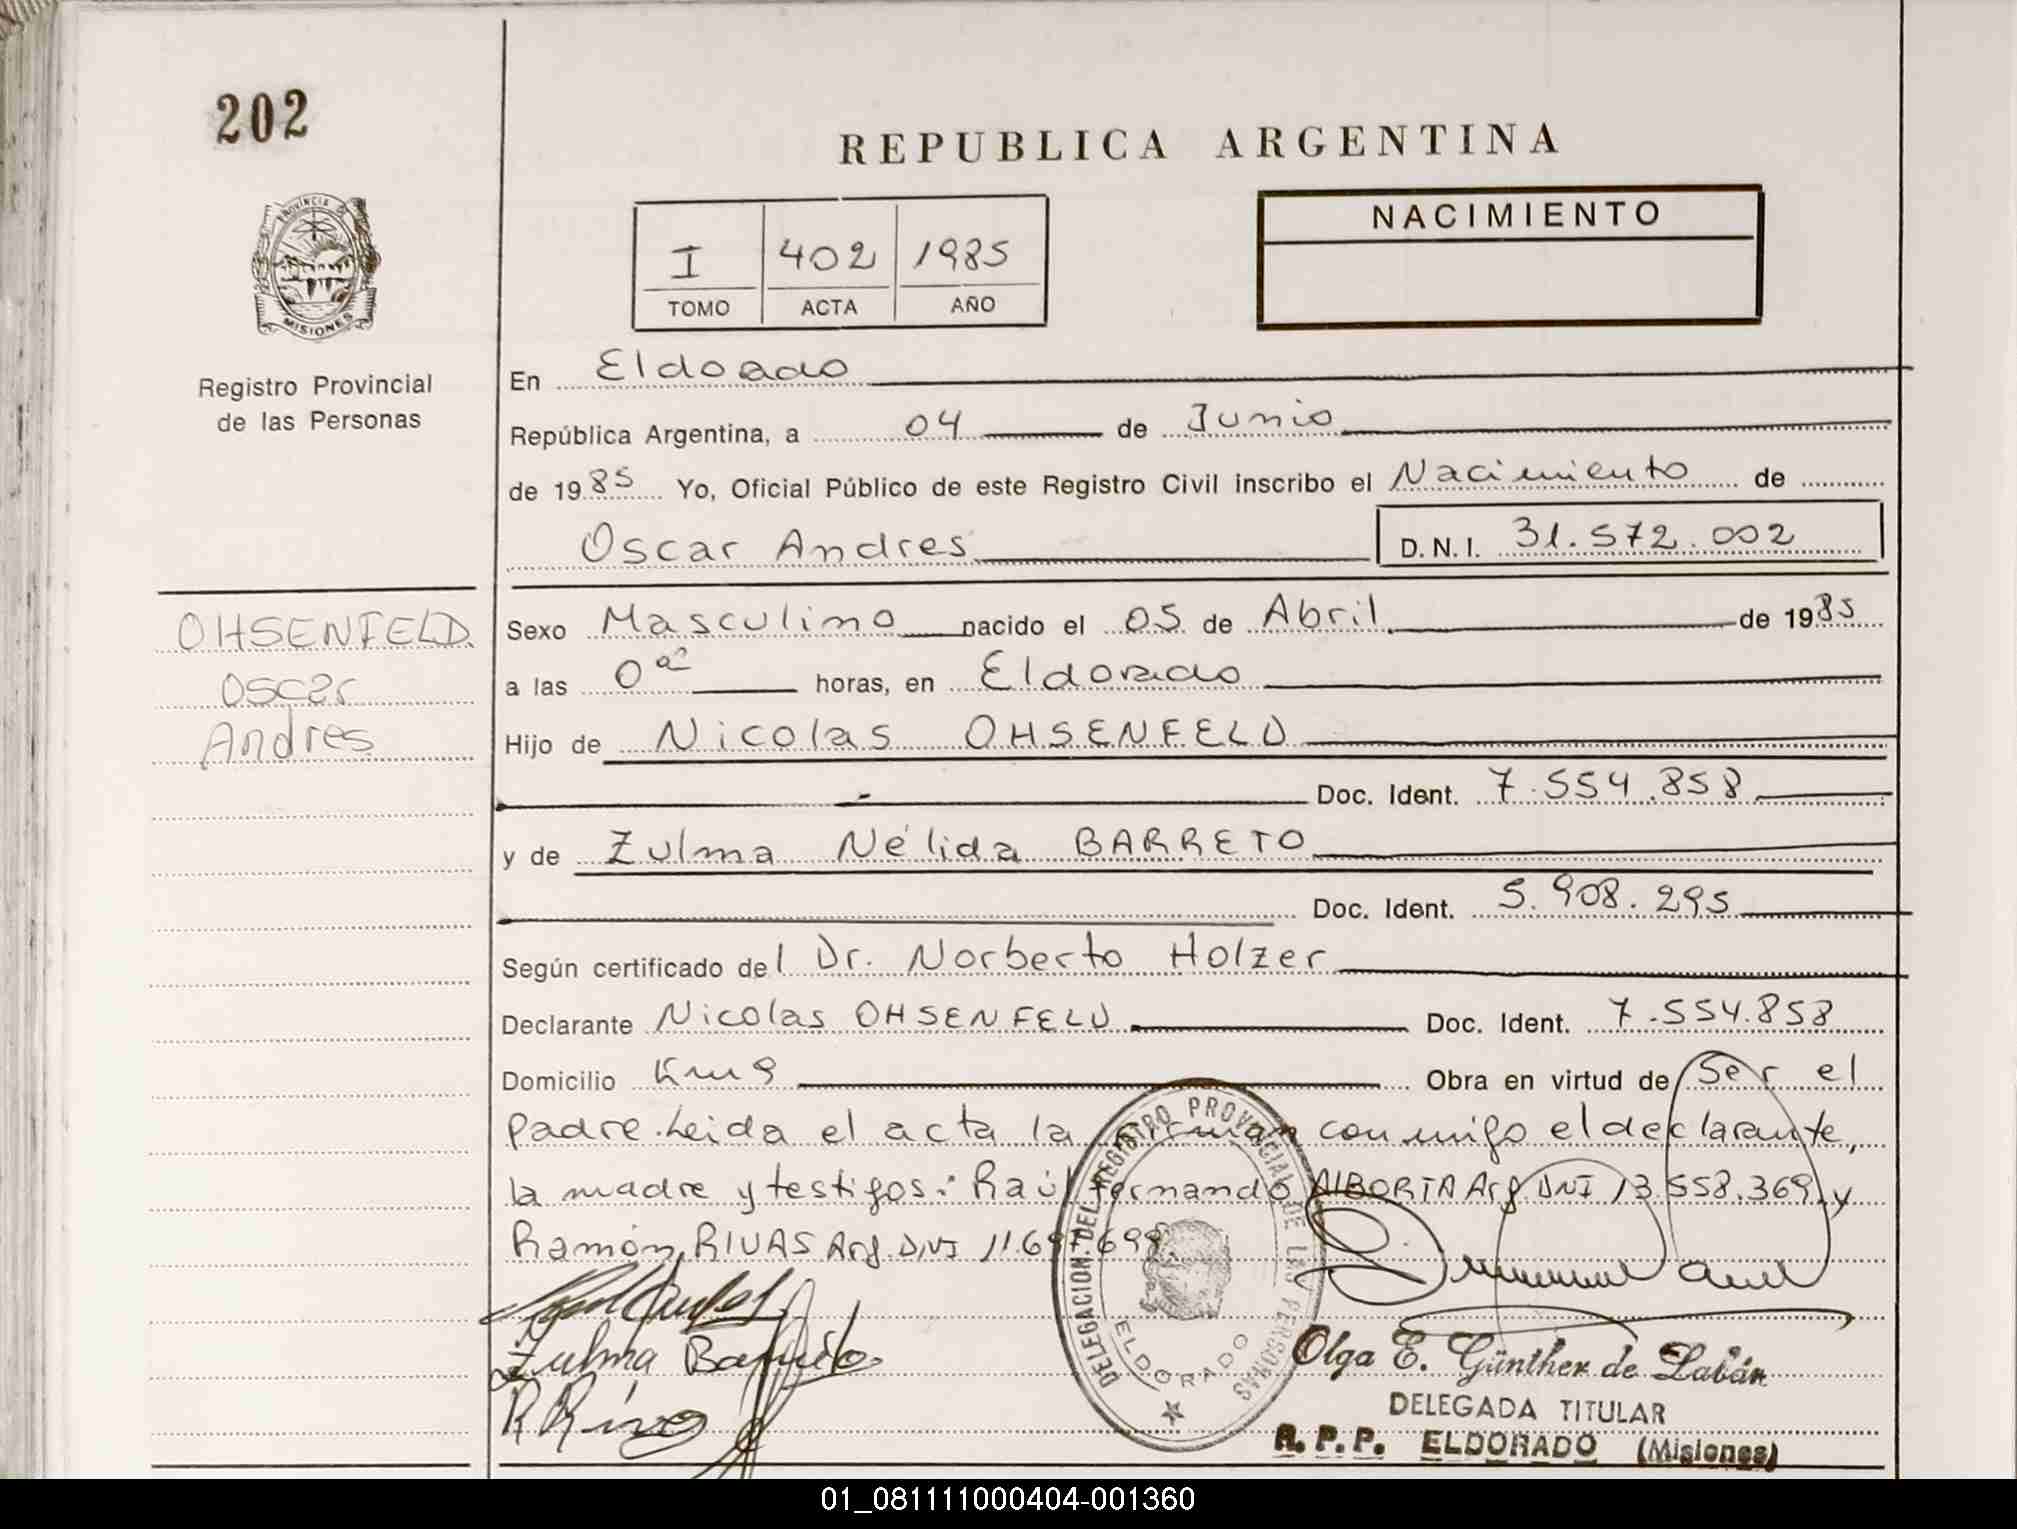 202
REPUBLICA ARGENTINA
PROVINCIA DE
MISIONES
I 402 1985
TOMO ACTA AÑO
NACIMIENTO
Registro Provincial
de las Personas
En Eldorado
República Argentina, a 04 de Junio
de 1985 Yo, Oficial Público de este Registro Civil inscribo el Nacimiento de
Oscar Andres D.N.I. 31.572.002
OHSENFELD
Oscar
Andres
Sexo Masculino nacido el 05 de Abril de 1985
a las 0 horas, en Eldorado
Hijo de Nicolas OHSENFELD
Doc. Ident. 7.554.858
y de Zulma Nélida BARRETO
Doc. Ident. 5.908.295
Según certificado del Dr. Norberto Holzer
Declarante Nicolas OHSENFELD Doc. Ident. 7.554.858
Domicilio Km 9 Obra en virtud de Ser el
padre. Leida el acta la firman conmigo el declarante,
la madre y testigos: Raúl Fernando ALBORTA Arg DNI 13.558.369 y
Ramón RIVAS Arg. DNI
Zulma Barreto
R Rivas
DELEGACION DEL REGISTRO PROVINCIAL DE LAS PERSONAS
ELDORADO
Olga E. Günther de Labán
DELEGADA TITULAR
R.P.P. ELDORADO (Misiones)
01_081111000404-001360